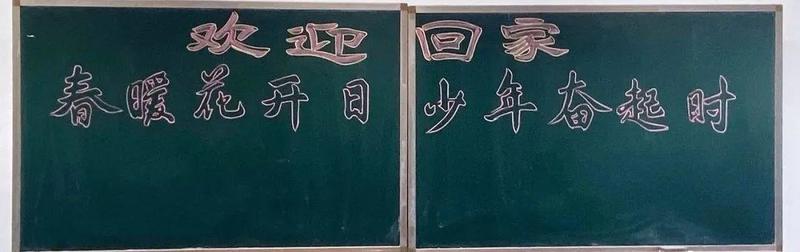 欢迎回家
春暖花开日 少年奋起时